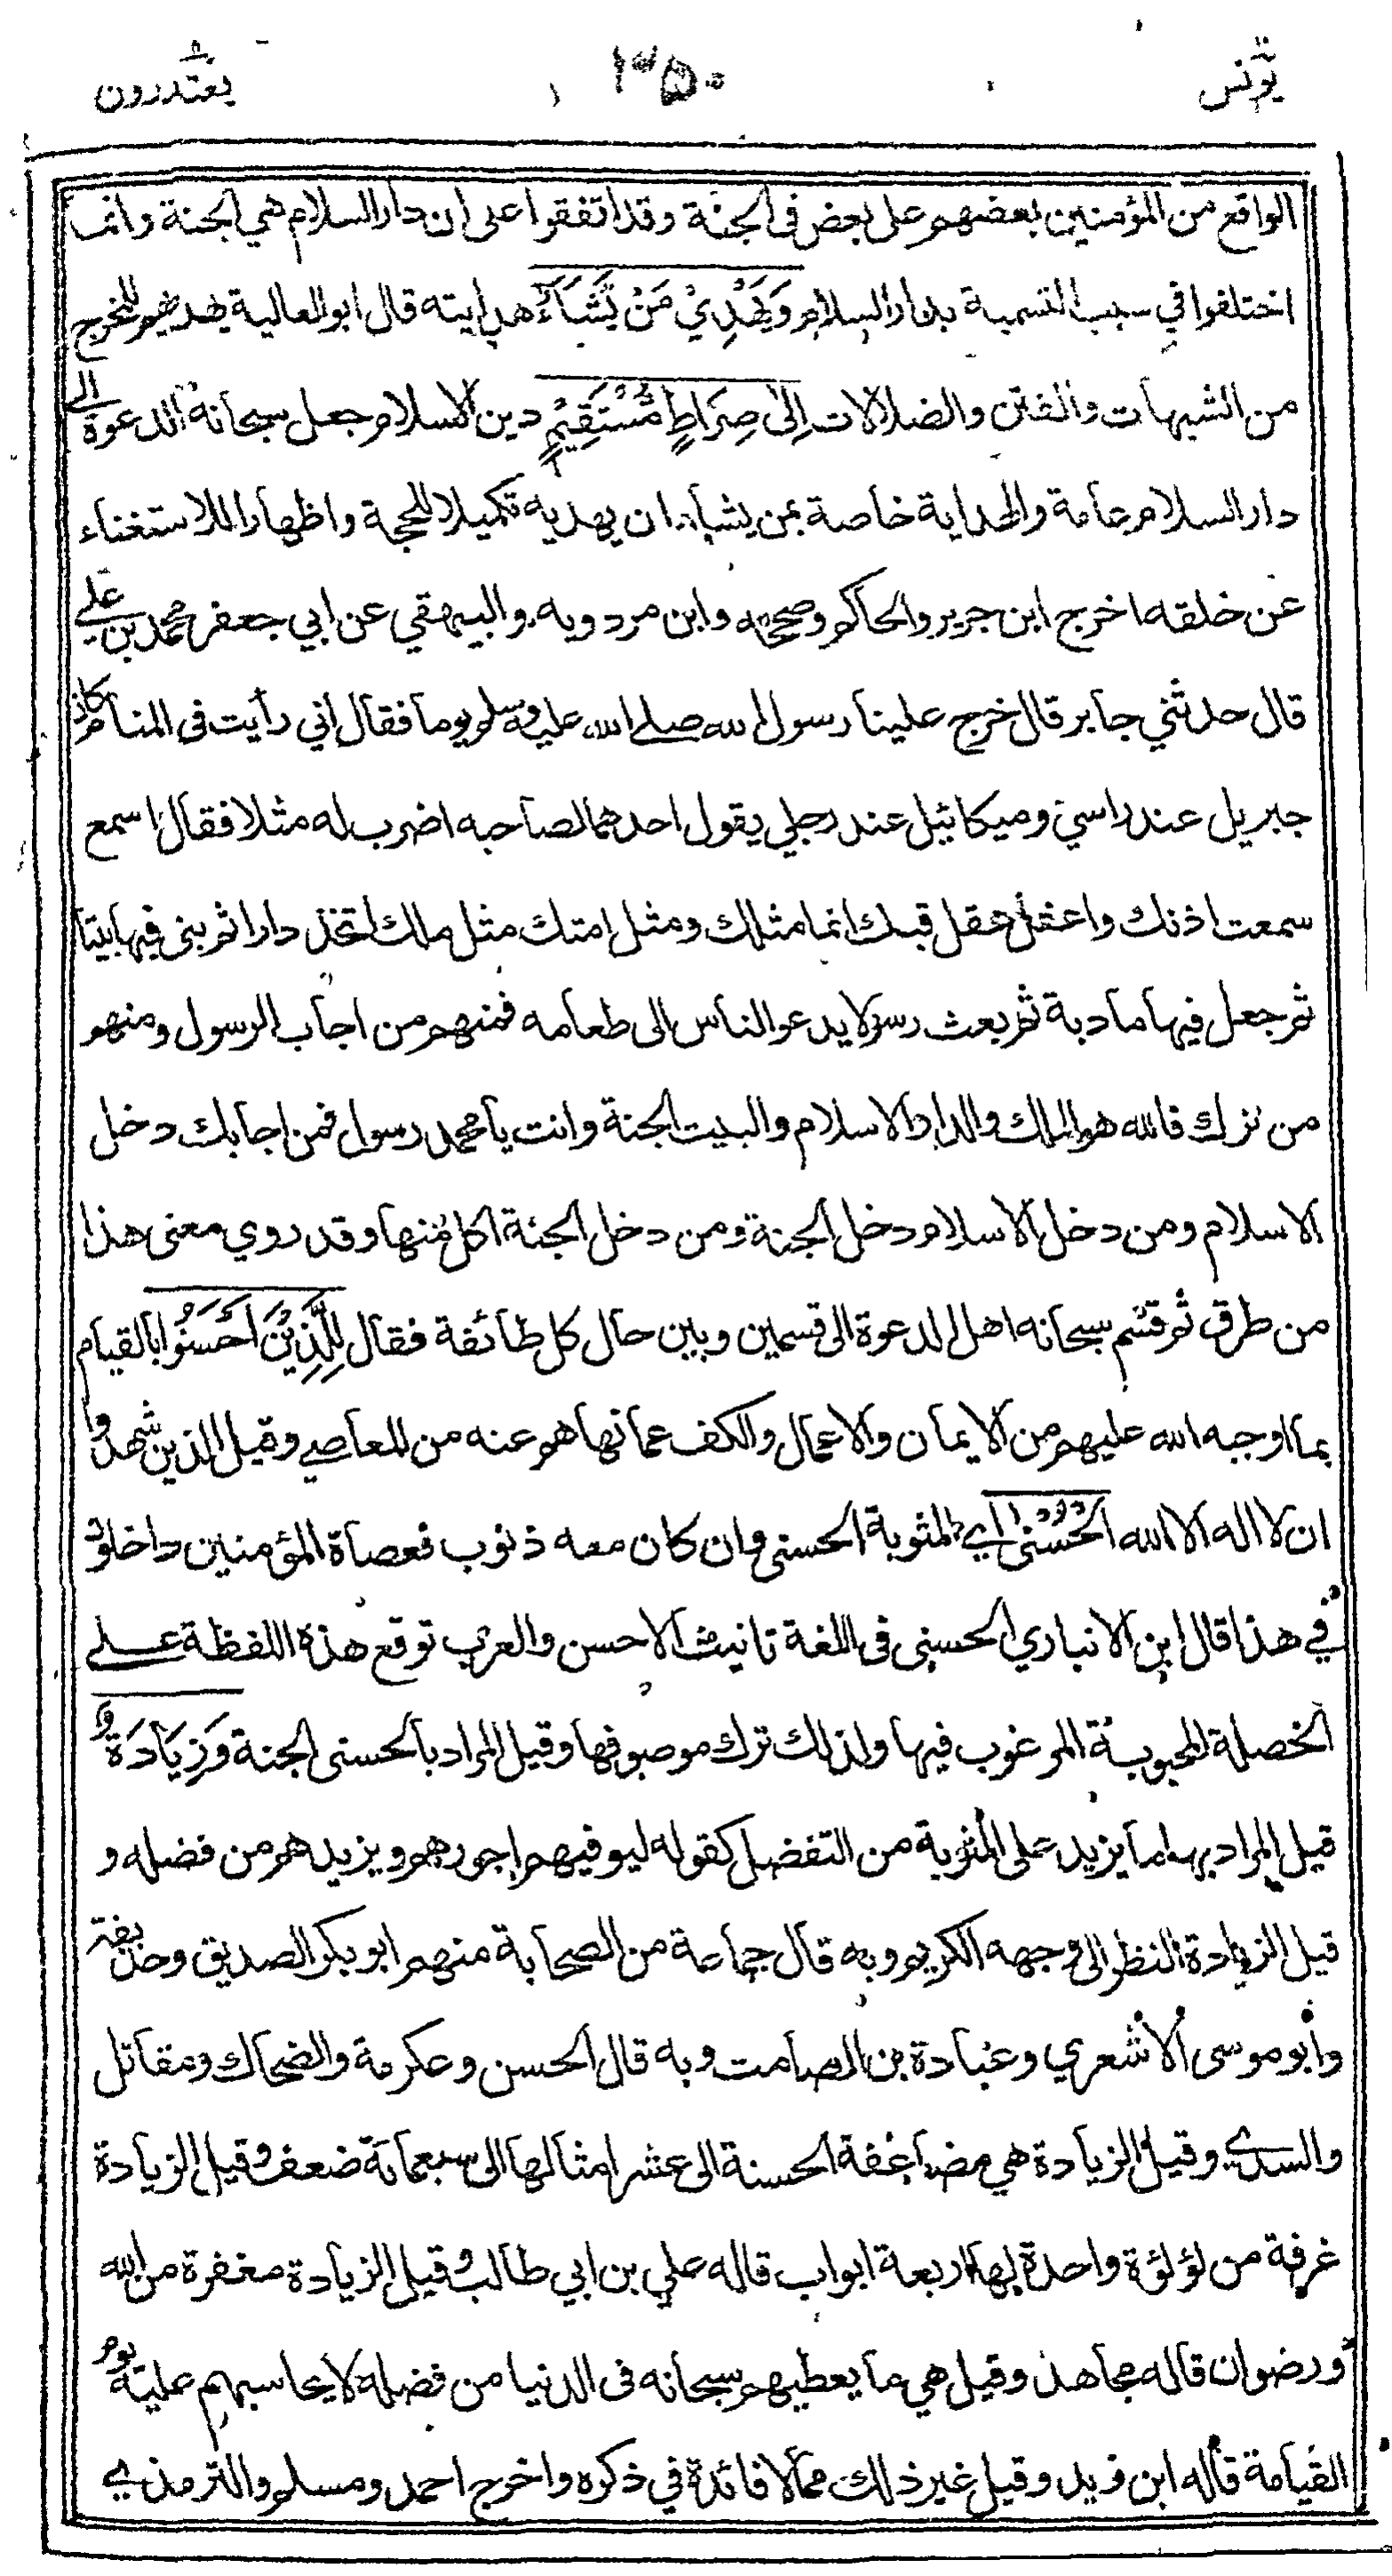 يونس ٣٥٠ يعتذرون
الواقع من المؤمنين بعضهم على بعض في الجنة وقد اتفقوا على ان دار السلام هي الجنة وانما
اختلفوا في سبب التسمية بدار السلام وَيَهْدِيْ مَنْ يَّشَآءُ هدايته قال ابو العالية يهديهم للمخرج
من الشبهات والفتن والضلالات إِلٰى صِرَاطٍ مُّسْتَقِيْمٍ دين الاسلام جعل سبحانه الدعوة الى
دار السلام عامة والهداية خاصة بمن يشاء ان يهديه تكميلا للحجة واظهارا للاستغناء
عن خلقه اخرج ابن جرير والحاكم وصححه وابن مردويه والبيهقي عن ابي جعفر محمد بن علي
قال حدثني جابر قال خرج علينا رسول الله صلى الله عليه وسلم يوما فقال اني رأيت في المنام كان
جبريل عند راسي وميكائيل عند رجلي يقول احدهما لصاحبه اضرب له مثلا فقال اسمع
سمعت اذنك واعقل عقل قبك انما مثلك ومثل امتك مثل ملك اتخذ دارا ثم بنى فيها بيتا
ثم جعل فيها مادبة ثم بعث رسولا يدعو الناس الى طعامه فمنهم من اجاب الرسول ومنهم
من ترك فالله هو الملك والدار الاسلام والبيت الجنة وانت يا محمد رسول فمن اجابك دخل
الاسلام ومن دخل الاسلام دخل الجنة ومن دخل الجنة اكل منها وقد روي معنى هذا
من طرق ثم قسم سبحانه اهل الدعوة الى قسمين وبين حال كل طائفة فقال لِلَّذِيْنَ اَحْسَنُوا بالقيام
بما اوجبه الله عليهم من الايمان والاعمال والكف عما نهاهم عنه من المعاصي وقيل الذين شهدوا
ان لا اله الا الله الْحُسْنٰى اي المثوبة الحسنى وان كان معه ذنوب فعصاة المؤمنين داخلون
في هذا قال ابن الانباري الحسنى في اللغة تانيث الاحسن والعرب توقع هذه اللفظة على
الخصلة المحبوبة المرغوب فيها ولذلك ترك موصوفها وقيل المراد بالحسنى الجنة وَزِيَادَةٌ و
قيل المراد بها ما يزيد على المثوبة من التفضل كقوله ليوفيهم اجورهم ويزيدهم من فضله و
قيل الزيادة النظر الى وجهه الكريم وبه قال جماعة من الصحابة منهم ابو بكر الصديق وحذيفة
وأبو موسى الأشعري وعبادة بن الصامت وبه قال الحسن وعكرمة والضحاك ومقاتل
والسدي وقيل الزيادة هي مضاعفة الحسنة الى عشر امثالها الى سبعمائة ضعف وقيل الزيادة
غرفة من لؤلؤة واحدة لها اربعة ابواب قاله علي بن ابي طالب وقيل الزيادة مغفرة من الله
ورضوان قاله مجاهد وقيل هي ما يعطيهم سبحانه في الدنيا من فضله لا يحاسبهم عليه يوم
القيامة قاله ابن زيد وقيل غير ذلك مما لا فائدة في ذكره واخرج احمد ومسلم والترمذي